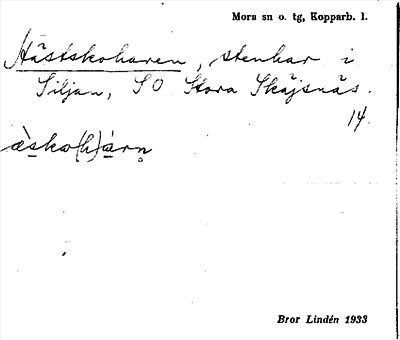 Mora sn o. tg, Kopparb. l.
Hästskoharen, stenhar i
Siljan, SO Stora Skäjsnäs.
14.
æ̀sko(h)árn̥
Bror Lindén 1933